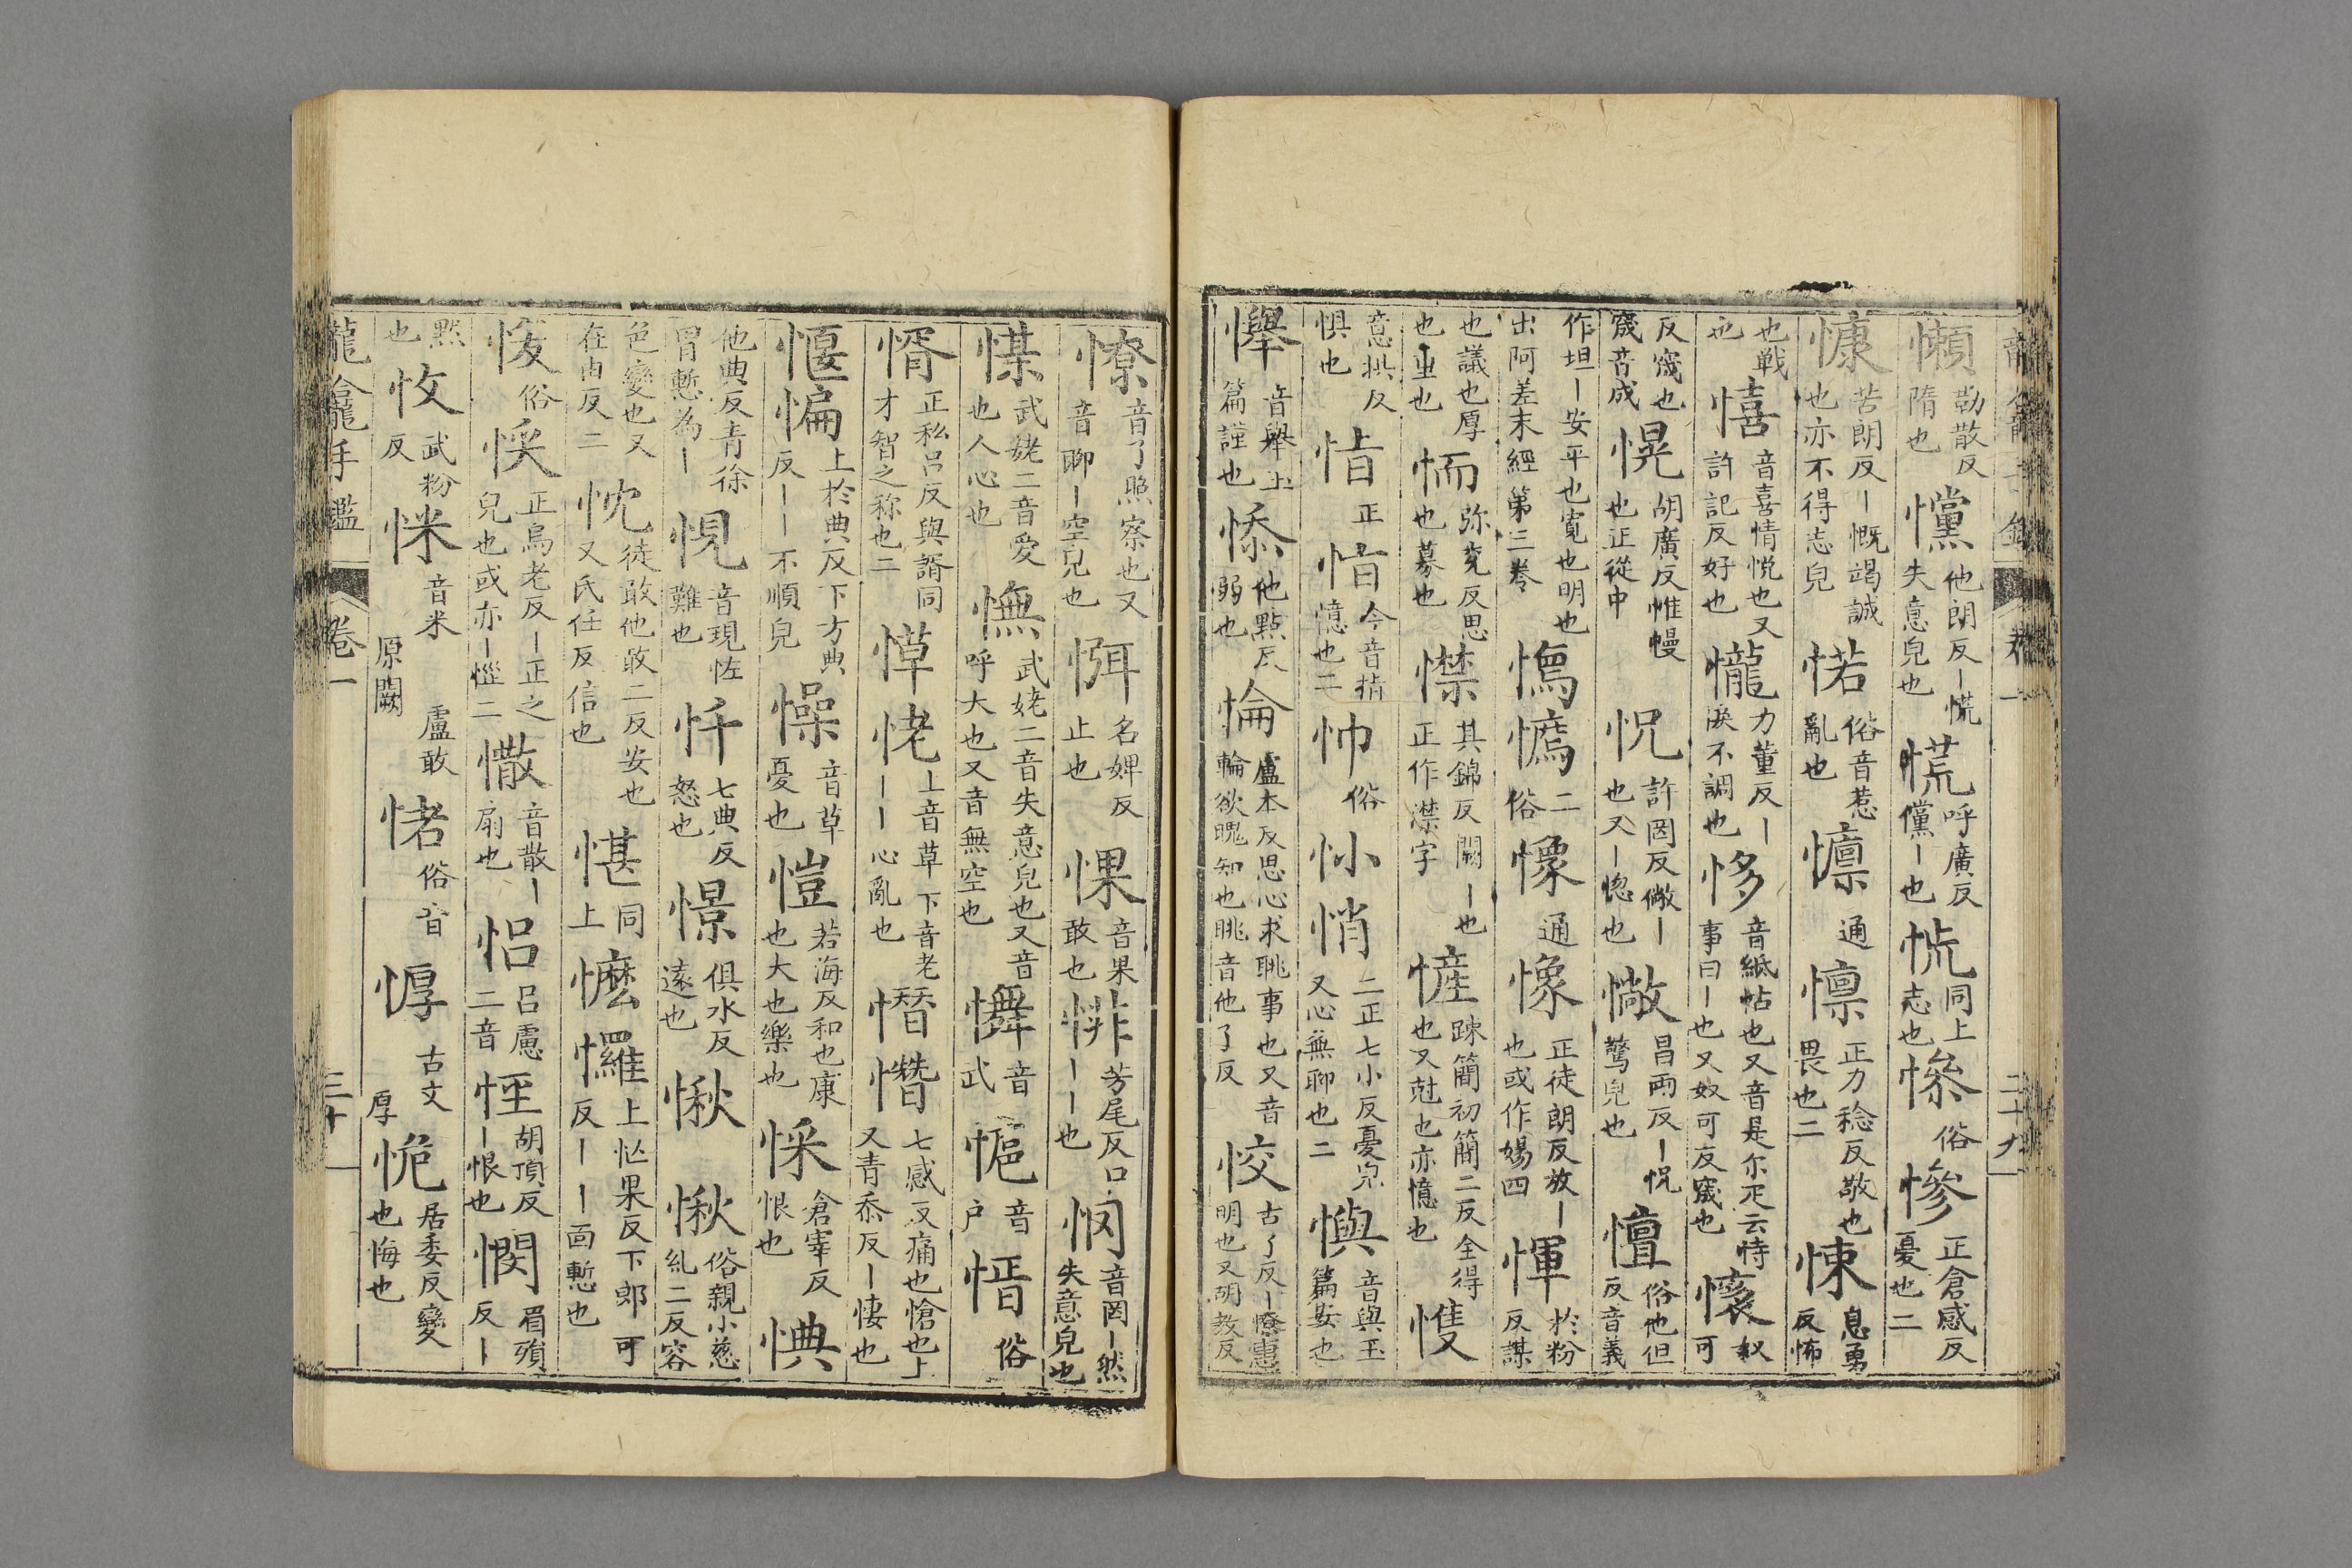 懶勒散反隋也戃他朗反丨慌失意皃也慌呼廣反儻丨也㤺同上志也㥒俗慘正倉感反憂也二
慷苦朗反丨慨竭誠也亦不得志皃惹俗音惹亂也懔通懍正力稔反敬也畏也二悚息勇反怖
也戰也憘音喜情悦也又許記反好也㦕力董反丨悷不調也恀音紙怙也又音是尓疋云恃事曰丨也又奴可反窳也㦝奴可
反窳也窳音成愰胡廣反帷幔也正從巾怳許罔反㒈丨也又丨惚也㦂昌兩反丨怳驚皃也㣶俗他但反音義
作坦丨安平也寬也明也出阿差末經第三卷㦍二俗𢠽通憿正徒朗反放丨也或作婸四惲於粉反謀
也議也厚也重也愐弥兖反思也慕也㦗其錦反闕丨也正作澿字㦃踈簡初簡二反全得也又尅也亦憶也㦜
意拱反惧也㤼正恉今音指憶也二㤄俗㣺悄二正七小反憂皃又心無聊也二懙音與玉篇安也
㦛音舉玉篇謹也悿他點反弱也惀盧本反思心求眺事也又音輪欲曉知也眺音他了反恔古了反丨憭惠明也又胡教反
憭音了照察也又音聊丨空皃也㥝名婢反止也惈音果敢也悱芳尾反口丨丨也惘音罔丨然失意皃也
㥈武姥二音愛也人心也憮武姥二音失意皃也又音呼大也又音無空也㦜音武㦿音户㥩俗
㥠正私吕反與諝同才智之称也二愺恅上音草下音老丨丨心亂也㦧憯七感反痛也愴也上又青忝反丨悽也
愝惼上於典反下方典反丨丨不順皃懆音草憂也愷若海反和也康也大也樂也婇倉宰反恨也㥏
他典反青徐冐慙為丨㦓音現恠難也忏七典反怒也憬俱水反遠也愀愀俗親小慈糺二反容
色變也又在由反二忱徒敢他敢二反安也又氏任反信也愖同上㦄㦬上忙果反下郎可反丨丨面慙也
㤇俗㥿正烏老反丨正之皃也或亦丨㥾二㦈音散丨扇也㤭吕慮二音悙胡頂反丨恨也憫眉殞反丨
黙也忟武粉反恘音米原闕盧敢㥩俗音㥀古文厚恑居委反變也悔也
龍龕手鑑卷一二十九
龍龕手鑑卷一三十